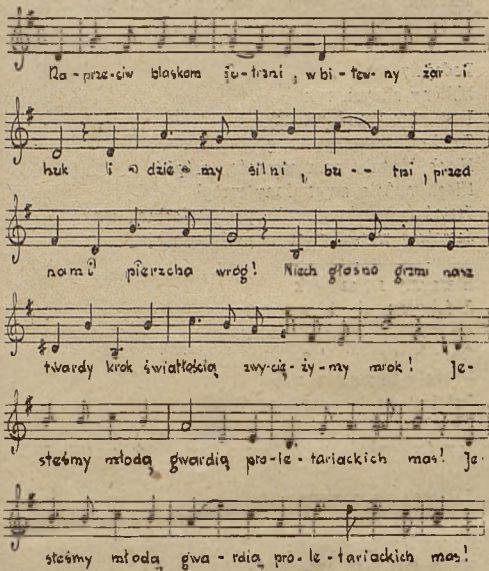 Na-prze-ciw blaskom ju-trzni, w bi-tew-ny żar i
huk i dzie my silni, bu -- tni, przed
nami pierzcha wróg! Niech głośno grzmi nasz
twardy krok światłością zwy-cię-ży-my mrok! Je-
steśmy młodą gwardią pro-le-tariackich mas! Je-
steśmy młodą gwa-rdią pro-le-tariackich mas!